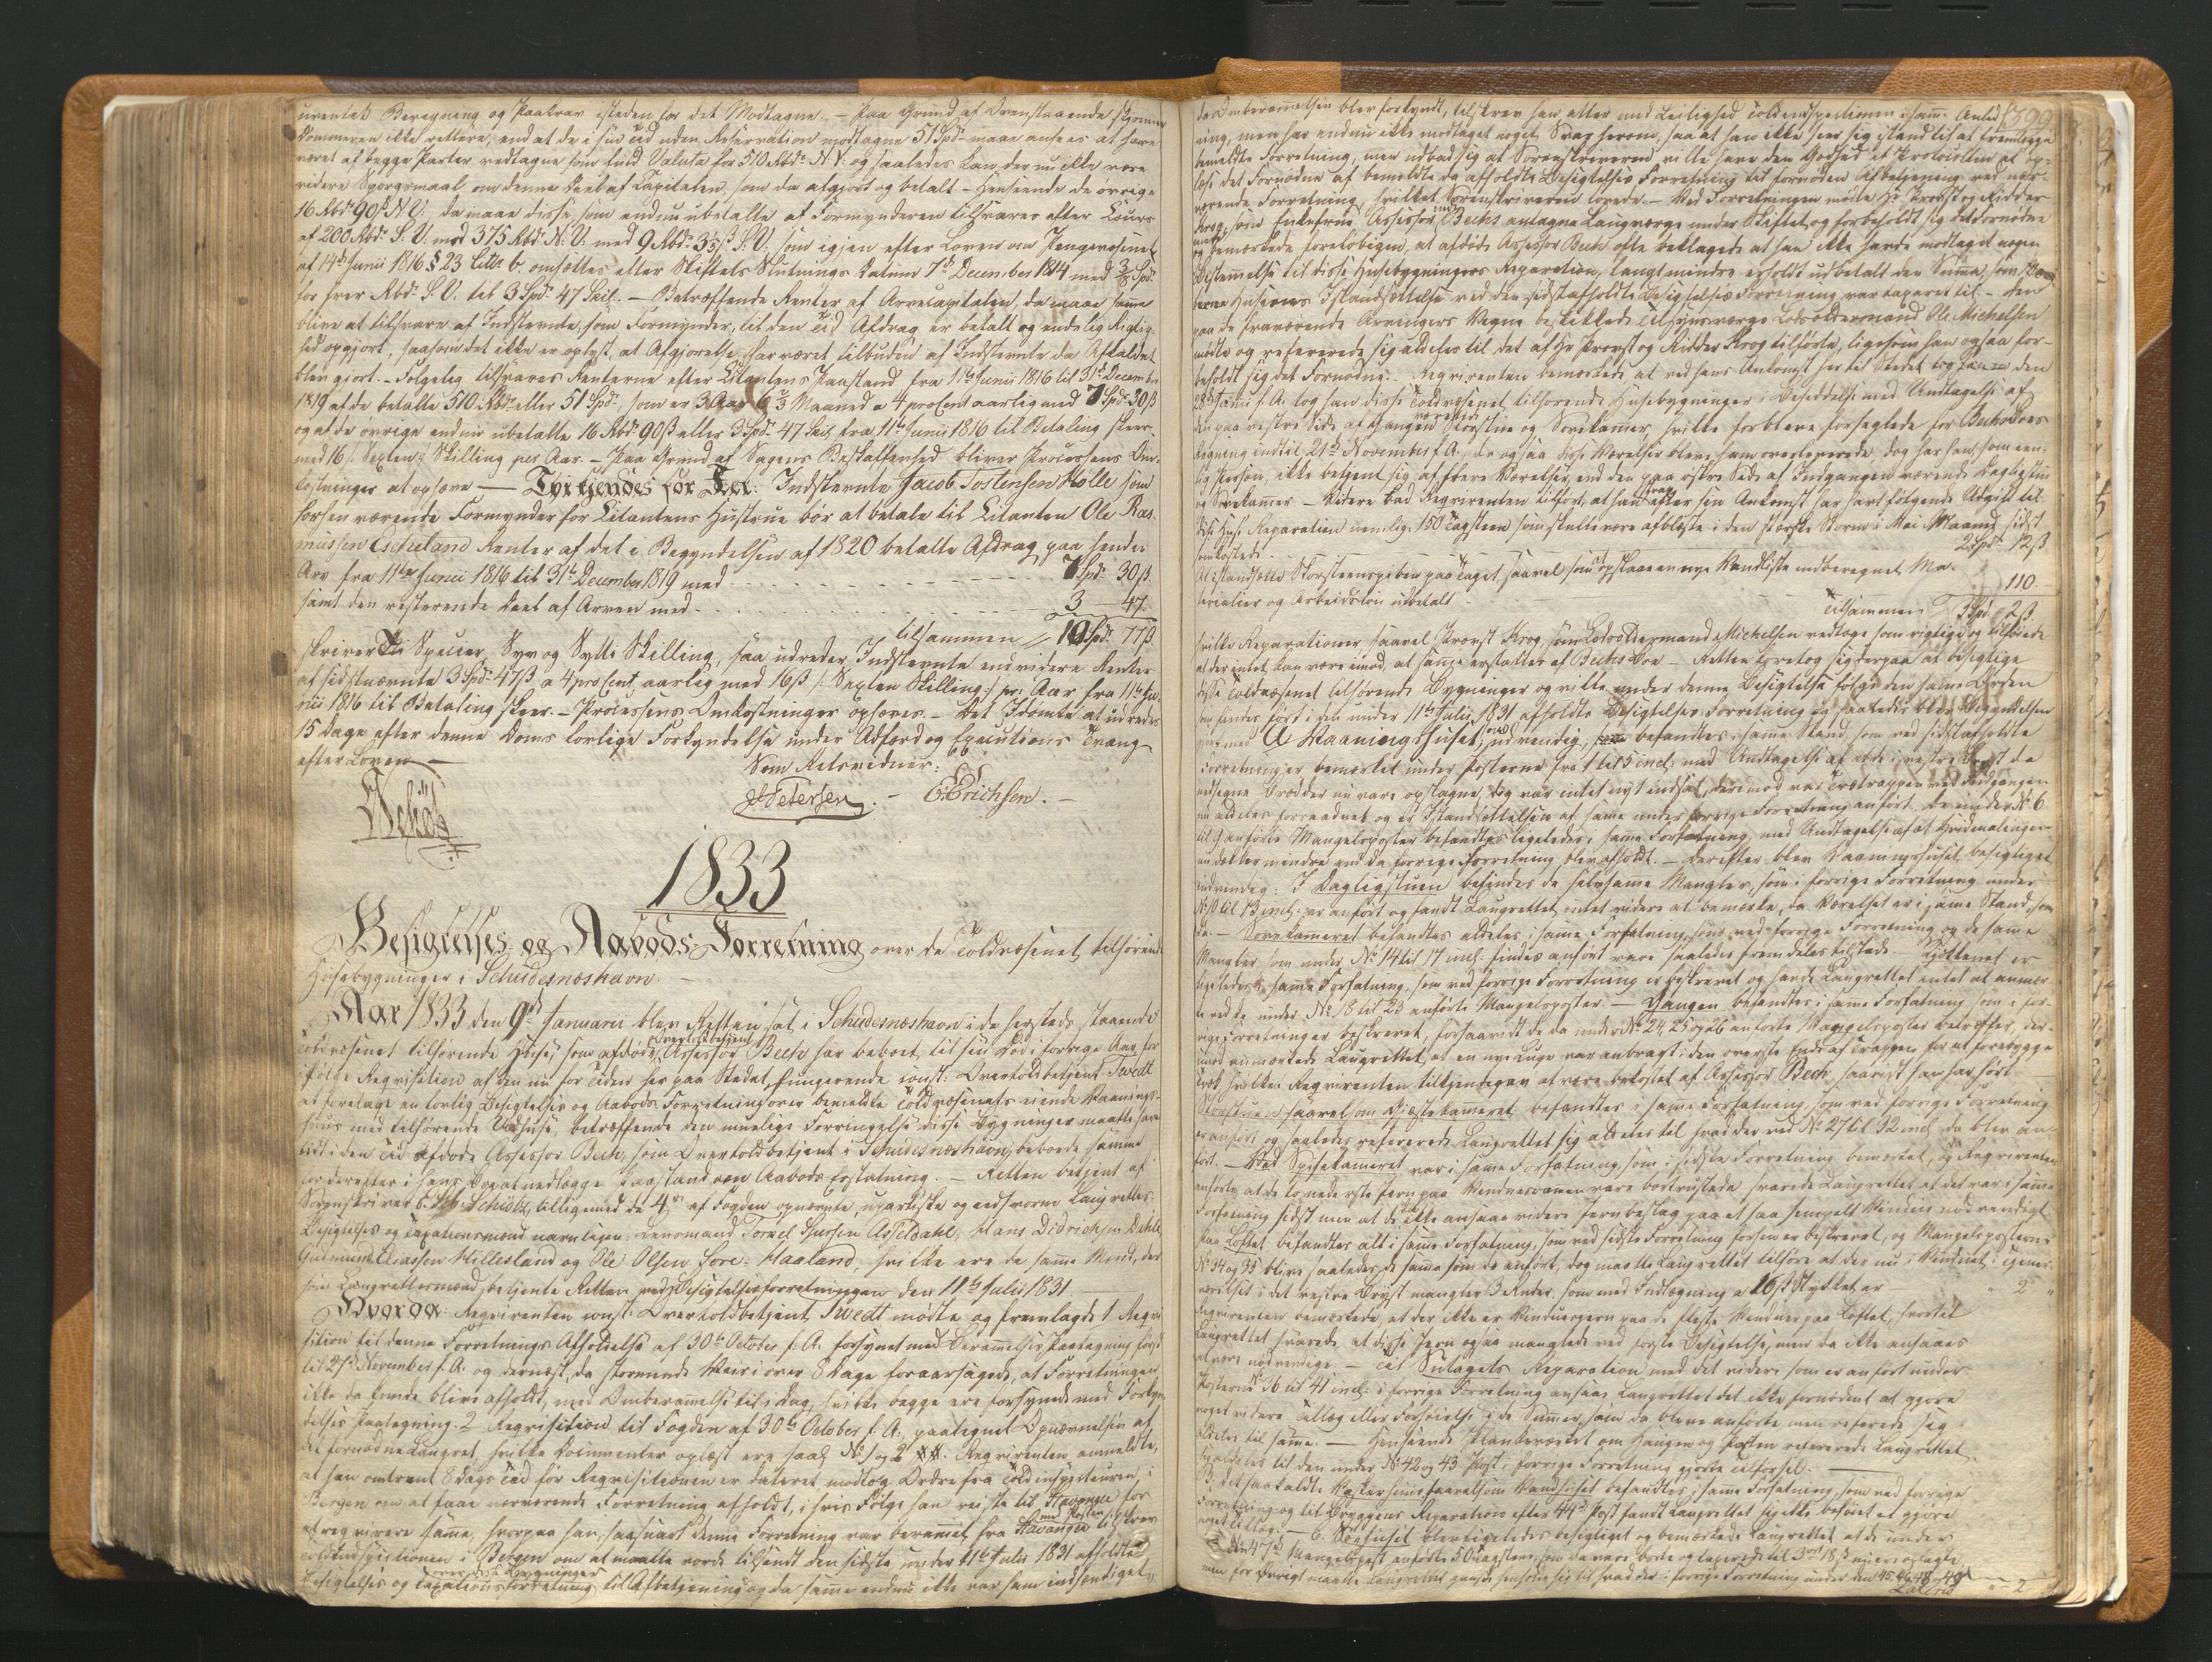 uventet Beregning og Paakrav isteden for det Modtagne. — Paa Grund af Ovenstaaende skjønner
Dommeren ikke rettere, end at de i sin Tid uden Reservation modtagne 51 Spd. maae ansees at have
været af begge Parter vedtagne som fuld Valuta for 510 Rbd. N.V. og saaledes kan der nu ikke være
videre Spørgsmaal om denne Deel af Capitalen, som da afgjort og betalt. — Henseende de øvrige
16 Rbd. 90 ß N.V. da maae disse, som endnu ubetalte af Formynderen tilsvares efter Cours
af 200 Rbd. S.V. mod 375 Rbd. N.V. med 9 Rbd. S.V. som igjen efter Loven om Pengevæsenet
af 14de Junii 1816 § 23 Littr. b. omsættes efter Skiftets Slutnings Datum 7de December 1814 med Spd.
for hver Rbd. S.V. til 3 Spd. 47 Skil. — Betræffende Renter af Arvecapitalen, da maae samme
blive at tilsvare af Indstevnte, som Formynder, til den Tid Afdrag er betalt og endelig Rigtig-
hed opgjort, saasom det ikke er oplyst, at Afgjørelse har været tilbuden af Indstevnte da Afkaldet
blev gjort. — Følgelig tilsvares Renterne efter Citantens Paastand fra 11te Junii 1816 til 31te December
1819 af de betalte 510 Rbd. eller 51 Spd., som er 3 Aar 6 2/3 Maaned a 4 proCent aarlig med 7 Spd. 30 ß
og af de øvrige endnu ubetalte 16 Rbd. 90 ß eller 3 Spd. 47 Skil. fra 11te Junii 1816 til Betaling skeer
med 16 /: Sexten :/ Skilling per Aar. — Paa Grund af Sagens Beskaffenhed bliver Processens Om-
kostninger at ophæve — Thi kjendes for Ret: Indstevnte Jacob Tostensen Hølle som
forhen værende Formynder for Citantens Hustrue bør at betale til Citanten Ole Ras-
mussen Escheland Renter af det i Begyndelsen af 1820 betalte Afdrag paa hendes
Arv fra 11te Junii 1816 til 31te December 1819 med 7 Spd. 30 ß.
samt den resterende Deel af Arven med 3 — 47.
tilsammen 10 Spd. 77 ß
skriver Ti Specier, Syv og Sytti Skilling, saa udreder Indstevnte endvidere Renter
af sidstnævnte 3 Spd. 47 ß a 4 pro Cent aarlig med 16 ß /: Sexten Skilling :/ pr. Aar fra 11te Ju-
nii 1816 til Betaling skeer. — Processens Omkostninger ophæves. — Det Idømte at udredes
15 Dage efter denne Doms lovlige Forkyndelse under Adfærd og Executions Tvang
efter Loven. —
Som Retsvidner:
Schiøtz
Petersen. — E. Erichsen. —
1833
Besigtelses og Aabods-Forretning over de Toldvæsenet tilhørende
Husebygninger i Schudesnæshavn. —
Aar 1833 den 9de Januarii blev Retten sat i Schudesnæshavn i de hersteds staaende
Toldvæsenet tilhørende Huse, som afdøde Overtoldbetjent Assessor Bech har beboet til sin Død i forrige Aar, for
ifølge Reqvisition af den nu for Tiden her paa Stedet fungerende const: Overtoldbetjent Tvedt
at foretage en lovlig Besigtelses og Aabods Forretning over bemeldte Toldvæsenets eiende Vaanings-
huus med tilhørende Udhuse, betræffende den muelige Forringelse disse Bygninger maatte have
lidt i den Tid afdøde Assessor Bech, som Overtoldbetjent i Schudesnæshavn, beboede samme
for derefter i hans Boe at nedlægge Paastand om Aabods Erstatning. — Retten betjent af
Sorenskriver Schiøtz, tilligemed de 4re af Fogden opnævnte, upartiske og eedsvorne Laugrettes
Besigtelses og Taxationsmænd navnligen: Lensmand Tormel Sjursen Asseldahl, Hans Didrichsen Dahle
Gudmund Eliassen Hillesland og Ole Olsen Søre-Haaland, hvilke ere de samme Mænd, der
som Laugrettesmænd, betjente Retten ved Besigtelsesforretningen den 11te Julii 1831. —
Hvorda: Reqvirenten const. Overtoldbetjent Tvedt mødte og fremlagde 1. Reqvi-
sition til denne Forretnings Afholdelse af 30te October f.A. forsynet med Berammelses Paategning først
til 21de November f.A. og dernæst, da stormende Veir i over 8 Dage foraarsagede, at Forretningen
ikke da kunde blive afholdt, med Omberammelse til i Dag, hvilke begge ere forsynede med Forkyn-
delses Paategning. 2. Reqvisition til Fogden af 30te October f.A., paategnet Opnævnelsen af
det fornødne Laugret, hvilke Documenter oplæst ere saal. No. 1 og 2. Reqvirenten anmeldte,
at han omtrent 8 Dags Tid før Reqvisitionen er dateret modtog Ordre fra Toldinspecteuren i
Bergen om at faae nærværende Forretning afholdt, i hvis Følge han reiste til Stavanger for
at reqvirere samme, hvorpaa han, saasnart denne Forretning var berammet, fra Stavanger med Posten tilskrev
Toldinspectionen i Bergen om at maatte vorde tilsendt den sidste under 11te Julii 1831 afholdte
Besigtelses og Taxationsforretning over disse Bygninger til Afbetjening og da samme endnu ikke var ham indhændiget,
599
da Omberammelsen blev forkyndt, tilskrev han atter med Leilighed Toldinspectionen i samme Anled-
ning, men har endnu ikke modtaget noget Svar herom, saa at han ikke seer sig istand til at fremlægge
bemeldte Forretning, men udbad sig at Sorenskriveren ville have den Godhed af Protocollen at op-
læse det Fornødne af bemeldte da afholdte Besigtelses Forretning til fornøden Afbetjening ved nær-
værende Forretning, hvilket Sorenskriveren lovede. — Ved Forretningen mødte Hr. Provst og Ridder
Krog, som Enkefrue Assessorinde Bechs antagne Laugværge under Skiftet og forbeholdt sig det fornødne
og bemærkede foreløbigen, at afdøde Assessor Bech ofte beklagede at han ikke havde modtaget nogen
Bestemmelse til disse Husebygningers Reparation, langt mindre erholdt udbetalt den Summa, som
Husenes Istandsættelse ved den sidst afholdte Besigtelses Forretning var taxeret til. — Den
paa de fraværende Arvingers Vegne beskikkede Tilsynsværge Lodsoldermand Ole Michelsen
mødte og refererede sig aldeles til det af Hr. Provst og Ridder Krog tilførte, ligesom han ogsaa for-
beholdt sig det Fornødne. — Reqvirenten bemærkede at ved hans Ankomst her til Stedet den
28de Junii f.A. tog han disse Toldvæsenet tilhørende Husebygninger i Besiddelse med Undtagelse af
den paa vestre Side af Gangen værende Storstue og Sovekammer, hvilke forbleve forseglede for Bechs Boes
Regning indtil 21de November f.A., da ogsaa disse Værelser bleve ham overleverede, dog har han, som een-
lig Person, ikke betjent sig af flere Værelser, end den paa østre Side af Indgangen værende Dagligstue
og Sovekammer. — Videre bad Reqvirenten tilført, at han strax efter sin Ankomst har havt følgende Udgift til
disse Huses Reparation nemlig: 150 Tagsteen som skulle være afblæste i den stærke Storm i Mai Maaned sidst
omkostede 2 Spd. 12 ß
At istandsætte Skorsteenspiben paa Taget, saavel som at opslaae en nye Vandliste indberegnet Ma-
terialier og Arbeidsløn udbetalt 110 —
Tilsammen 3 Spd. 2 ß
hvilke Reparationer, saavel Provst Krog, som Lodsoldermand Michelsen vedtoge som rigtige og tilføiede
at der intet kan være imod, at samme erstattes af Bechs Boe. — Retten foretog sig derpaa at besigtige
disse Toldvæsenet tilhørende Bygninger og vilde under denne Besigtelse følge den samme Orden
som findes ført i den under 11te Julii 1831 afholdte Besigtelses Forretning og saaledes blev Begyndelsen
gjort med A Vaaningshuset, udvendig, befandtes i samme Stand, som ved sidstafholdte
Forretninger bemærket under Posterne fra 1 til 5 incl. med Undtagelse af at de i vestre Bryst da
nedfaldne Brædder nu vare opslagne, dog var intet nyt indsat, derimod var Trætrappen ved Indgangen
nu aldeles forraadnet og er Istandsættelsen af samme under forrige Forretning anført. De under No. 6
til 9 anførte Mangelsposter befandtes ligeledes i samme Forfatning, med Undtagelse af at Hvidmalingen
nu dækker mindre end da forrige Forretning blev afholdt. — Derefter blev Vaaningshuset besigtiget
indvendig: I Dagligstuen befindes de selvsamme Mangler, som i forrige Forretning under
No. 10 til 13 incl. er anført og fandt Laugrettet intet videre at bemærke, da Værelset er i samme Stand, som
da. — Sovekameret befandtes aldeles i samme Forfatning, som ved forrige Forretning og de samme
Mangler som under No. 14 til 17 incl. findes anført vare saaledes fremdeles tilstede. — Kjøkkenet er
ligeledes i samme Forfatning, som ved forrige Forretning er beskrevet og havde Laugrettet intet at anmær-
ke ved de under No. 18 til 23 anførte Mangelsposter. — Gangen befandtes i samme Forfatning som i for-
rige Forretninger beskrevet, forsaavidt de da under No. 24, 25 og 26 anførte Mangelsposter betræffer, der-
imod anmærkede Laugrettet, at en nye Luge var anbragt i den øverste Ende af Trappen for at forebygge
Træk, hvilken Reqvirenten tilkjendegav at være bekostet af Assessor Bech, saavidt han har hørt. —
Storstuen saavelsom Gjæstekameret befandtes i samme Forfatning, som ved forrige Forretning
er anført og saaledes refererede Laugrettet sig aldeles til hvad der ved No. 27 til 32 incl. da blev an-
ført. — Ved Spisekameret var i samme Forfatning, som i sidste Forretning bemærket, og Reqvirenten
anførte, at de to nederste Jern paa Vinduesrammen vare bortrustede svarede Laugrettet at det var i samme
Forfatning sidst men at de ikke ansaae videre Jernbeslag paa et saa simpelt Vindue nødvendigt.
Paa Loftet befandtes alt i samme Forfatning, som ved sidste Forretning forhen er beskrevet, og Mangelsposterne
No. 34 og 35 blive saaledes de samme som da anført, dog maatte Laugrettet tilføre at der nu i Vinduet i
værelset i det vestre Bryst mangler 3 Ruder, som med Indlægning a 16 ß Stykket er — " 2 "
Reqvirenten bemærkede, at der ikke er Vinduesjern paa de fleste Vinduer paa Loftet, hvortil
Laugrettet svarede, at disse Jern ogsaa manglede ved første Besigtelse, men da ikke ansaaes
at være nødvendige. — Til Sutagets Reparation med det videre som er anført under
Posterne No. 36 til 41 incl. i forrige Forretning ansaae Laugrettet det ikke fornødent at gjøre
noget videre Tillæg eller Forhøielse i de Summer, som da bleve anførte men refererede sig
aldeles til samme. — Henseende Plankeværket om Haugen og Porten refererede Laugrettet
sig aldeles til den under No. 42 og 43 Post i forrige Forretning gjorte Tilførsel. —
B. det saakaldte Vaskerhuus saavelsom Vandhuset befandtes i samme Forfatning, som ved forrige
Forretning og til Bryggens Reparation efter 44de Post fandt Laugrettet sig ikke beføiet at gjøre
noget Tillæg. — C. Søehuset blev ligeledes besigtiget og bemærkede Laugrettet at de under
den 47de Mangelspost anførte 50 Tagsteen, som da vare borte og taxerede til 3 ort 18 ß nu ere oplagte
men for Øvrigt maatte Laugrettet ganske henholde sig til hvad der i forrige Forretning under den 45. 46. 48 og 49
Lateris " — 2